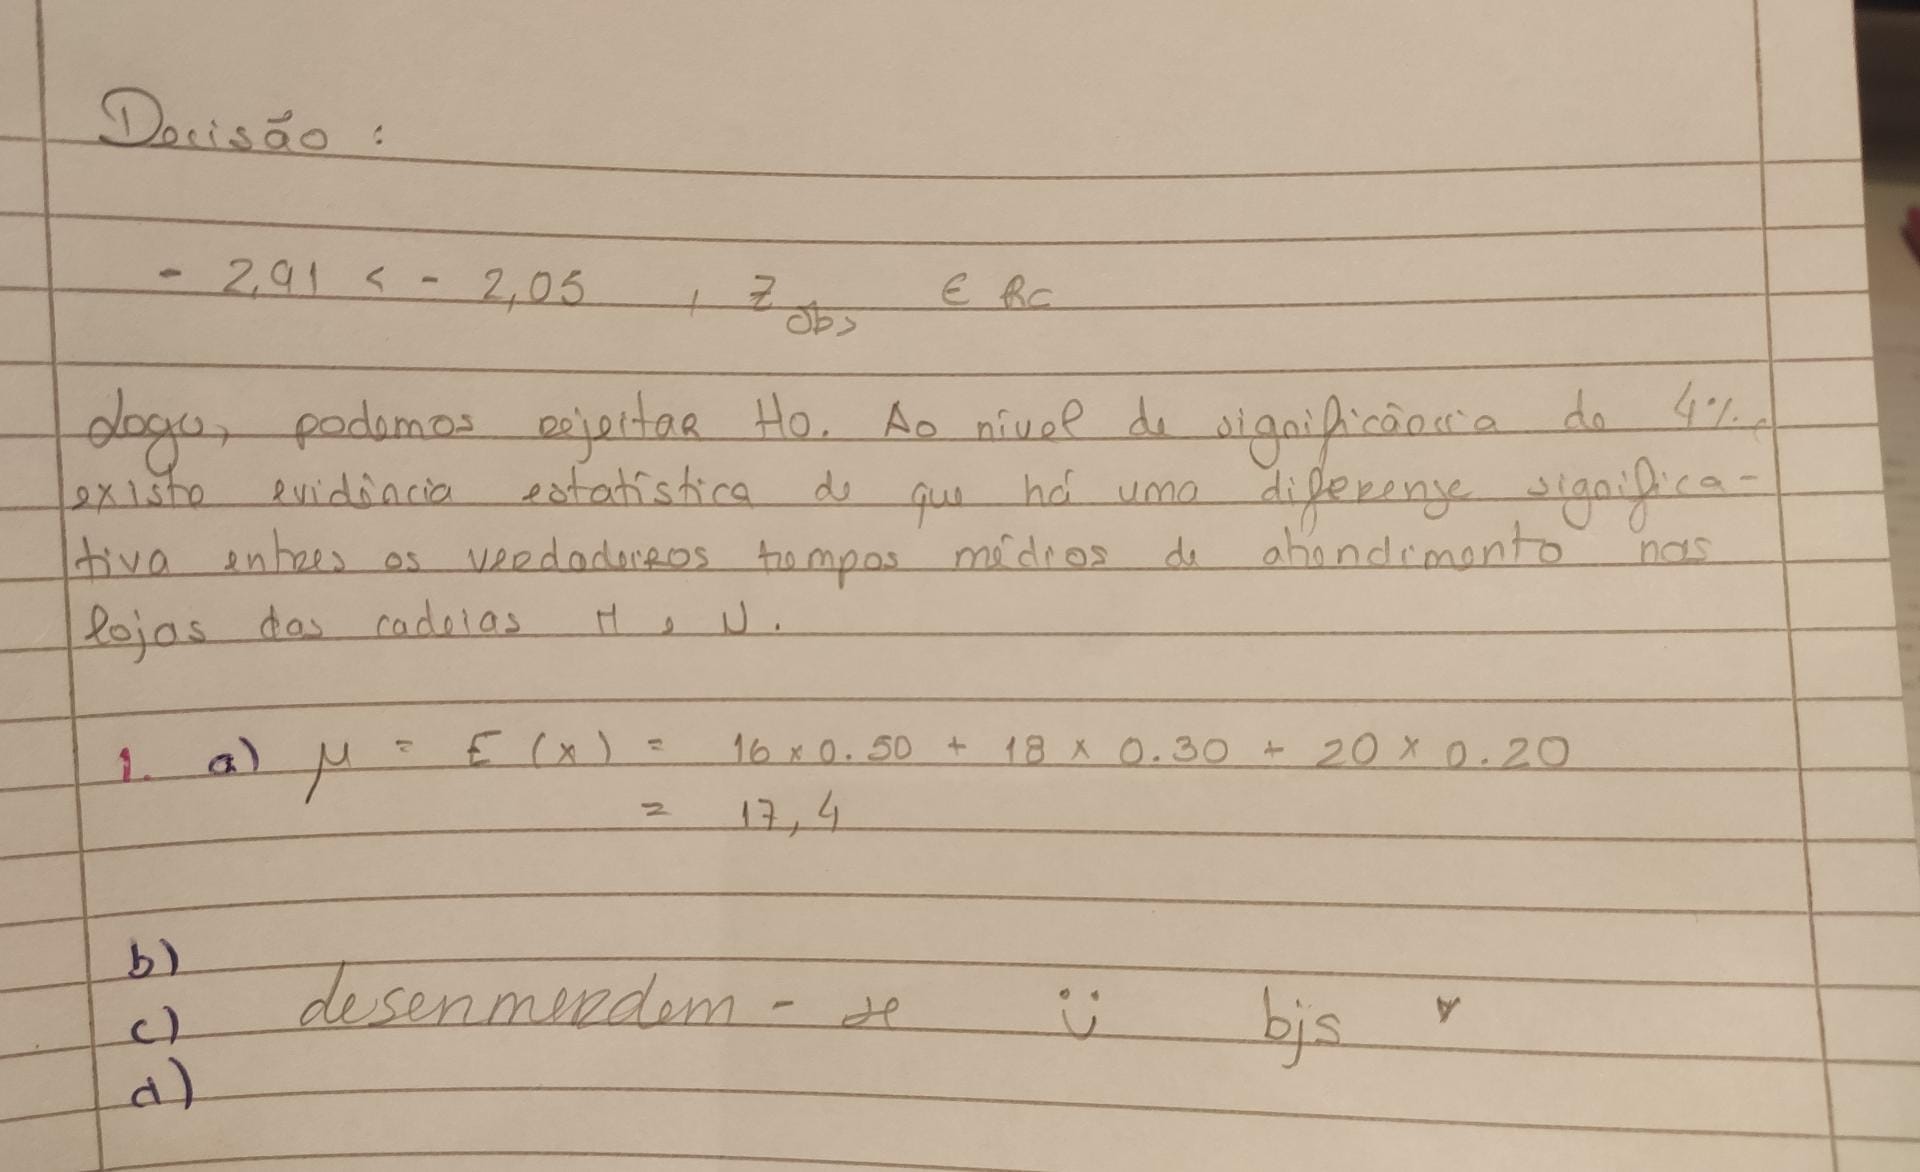 Decisão :
- 2,91 < - 2,05 , Z obs ∈ RC
Logo, podemos rejeitar H0. Ao nível de significância de 4%,
existe evidência estatística de que há uma diferença significa-
tiva entres os verdadeiros tempos médios de atendimento nas
lojas das cadeias H e N.
1. a) μ = E (x) = 16 x 0.50 + 18 x 0.30 + 20 x 0.20
= 17,4
b)
c) desenmerdem - se ü bjs ♥
d)